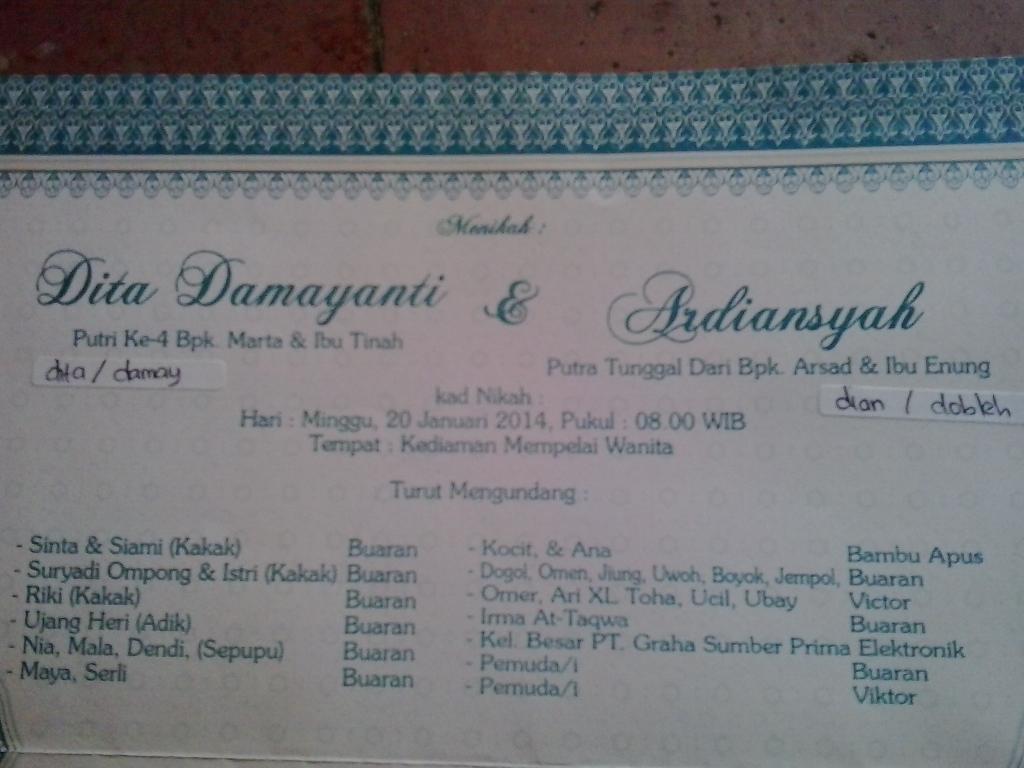 Menikah :
Dita Damayanti & Ardiansyah
Putri Ke-4 Bpk. Marta & Ibu Tinah
Putra Tunggal Dari Bpk. Arsad & Ibu Enung
dita / damay
dian / dobleh
kad Nikah :
Hari : Minggu, 20 Januari 2014, Pukul : 08.00 WIB
Tempat : Kediaman Mempelai Wanita
Turut Mengundang :
- Sinta & Siami (Kakak) Buaran
- Suryadi Ompong & Istri (Kakak) Buaran
- Riki (Kakak) Buaran
- Ujang Heri (Adik) Buaran
- Nia, Mala, Dendi, (Sepupu) Buaran
- Maya, Serli Buaran
- Kocit, & Ana Bambu Apus
- Dogol, Omen, Jiung, Uwoh, Boyok, Jempol, Buaran
- Omer, Ari XL Toha, Ucil, Ubay Victor
- Irma At-Taqwa Buaran
- Kel. Besar PT. Graha Sumber Prima Elektronik
- Pemuda/i Buaran
- Pemuda/i Viktor